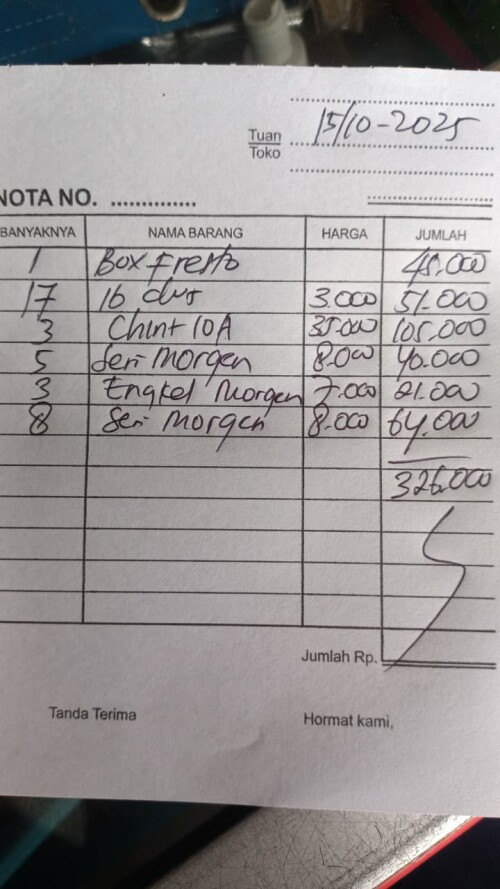 15/10-2025
Tuan
Toko
NOTA NO. ..............
BANYAKNYA NAMA BARANG HARGA JUMLAH
1 Box Fresto 45.000
17 dus 3.000 51.000
3 Chint 10A 35.000 105.000
5 Seri Morgen 8.000 40.000
3 Engkel Morgen 7.000 21.000
8 Seri Morgen 8.000 64.000
326.000
Jumlah Rp.
Tanda Terima Hormat kami,